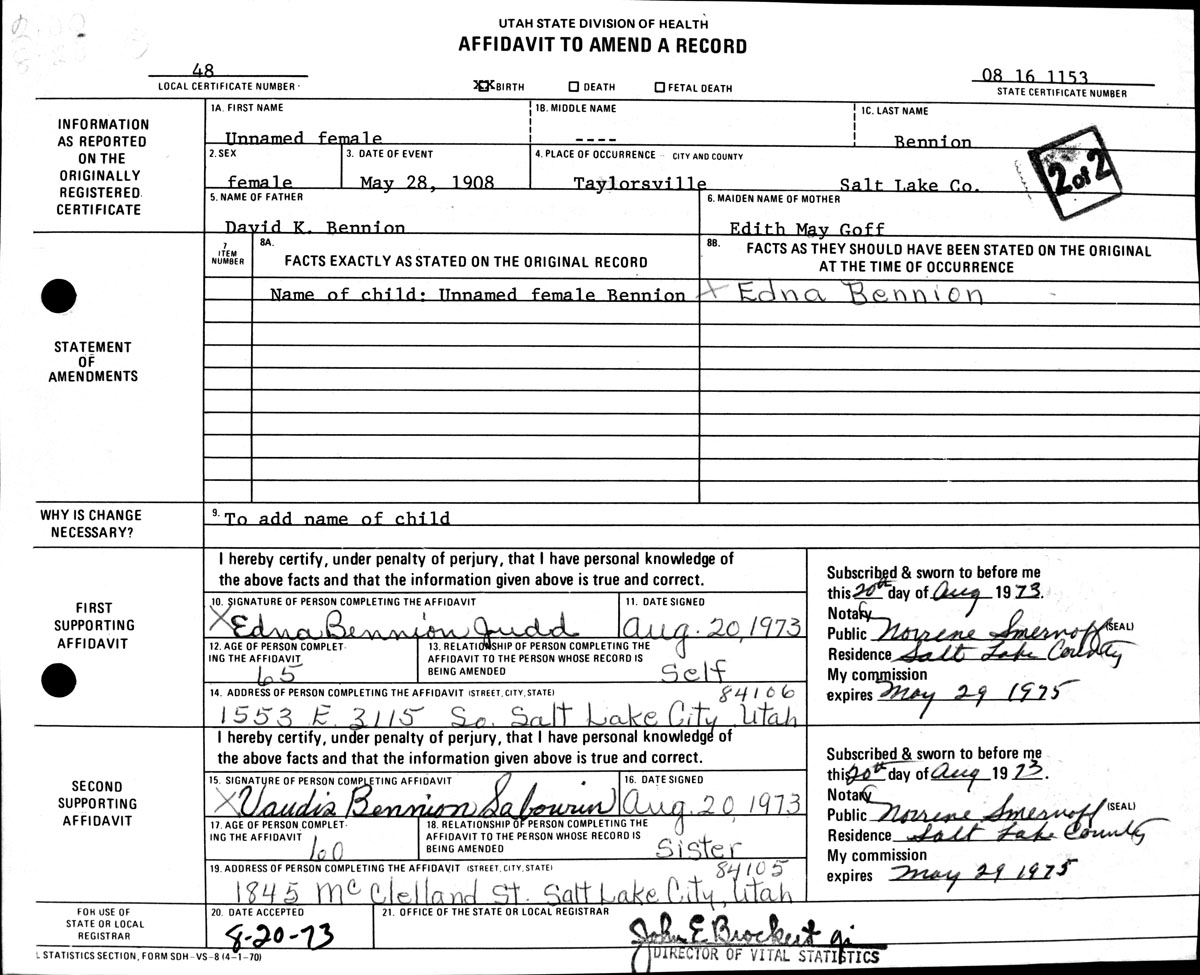 UTAH STATE DIVISION OF HEALTH
AFFIDAVIT TO AMEND A RECORD
48
LOCAL CERTIFICATE NUMBER
XX BIRTH ☐ DEATH ☐ FETAL DEATH
08 16 1153
STATE CERTIFICATE NUMBER
INFORMATION AS REPORTED ON THE ORIGINALLY REGISTERED CERTIFICATE
1A. FIRST NAME 1B. MIDDLE NAME 1C. LAST NAME
Unnamed female ---- Bennion
2. SEX 3. DATE OF EVENT 4. PLACE OF OCCURRENCE - CITY AND COUNTY
female May 28, 1908 Taylorsville Salt Lake Co.
2 of 2
5. NAME OF FATHER 6. MAIDEN NAME OF MOTHER
David K. Bennion Edith May Goff
STATEMENT OF AMENDMENTS
7 ITEM NUMBER
8A. FACTS EXACTLY AS STATED ON THE ORIGINAL RECORD
8B. FACTS AS THEY SHOULD HAVE BEEN STATED ON THE ORIGINAL
AT THE TIME OF OCCURRENCE
Name of child: Unnamed female Bennion X Edna Bennion
WHY IS CHANGE NECESSARY?
9. To add name of child
FIRST SUPPORTING AFFIDAVIT
I hereby certify, under penalty of perjury, that I have personal knowledge of
the above facts and that the information given above is true and correct.
10. SIGNATURE OF PERSON COMPLETING THE AFFIDAVIT 11. DATE SIGNED
X Edna Bennion Judd Aug. 20, 1973
12. AGE OF PERSON COMPLETING THE AFFIDAVIT
65
13. RELATIONSHIP OF PERSON COMPLETING THE AFFIDAVIT TO THE PERSON WHOSE RECORD IS BEING AMENDED
Self
14. ADDRESS OF PERSON COMPLETING THE AFFIDAVIT (STREET, CITY, STATE)
84106
1553 E. 3115 So. Salt Lake City, Utah
Subscribed & sworn to before me
this 20th day of Aug 1973.
Notary
Public Norrene Smernoff (SEAL)
Residence Salt Lake County
My commission
expires May 29 1975
SECOND SUPPORTING AFFIDAVIT
I hereby certify, under penalty of perjury, that I have personal knowledge of
the above facts and that the information given above is true and correct.
15. SIGNATURE OF PERSON COMPLETING AFFIDAVIT 16. DATE SIGNED
X Vaudis Bennion Sabourin Aug. 20, 1973
17. AGE OF PERSON COMPLETING THE AFFIDAVIT
60
18. RELATIONSHIP OF PERSON COMPLETING THE AFFIDAVIT TO THE PERSON WHOSE RECORD IS BEING AMENDED
Sister
19. ADDRESS OF PERSON COMPLETING THE AFFIDAVIT (STREET, CITY, STATE)
84105
1845 McClelland St. Salt Lake City, Utah
Subscribed & sworn to before me
this 20th day of Aug 1973.
Notary
Public Norrene Smernoff (SEAL)
Residence Salt Lake County
My commission
expires May 29 1975
FOR USE OF STATE OR LOCAL REGISTRAR
20. DATE ACCEPTED 21. OFFICE OF THE STATE OR LOCAL REGISTRAR
8-20-73 John E Brockert gi
DIRECTOR OF VITAL STATISTICS
L STATISTICS SECTION, FORM SDH-VS-8 (4-1-70)